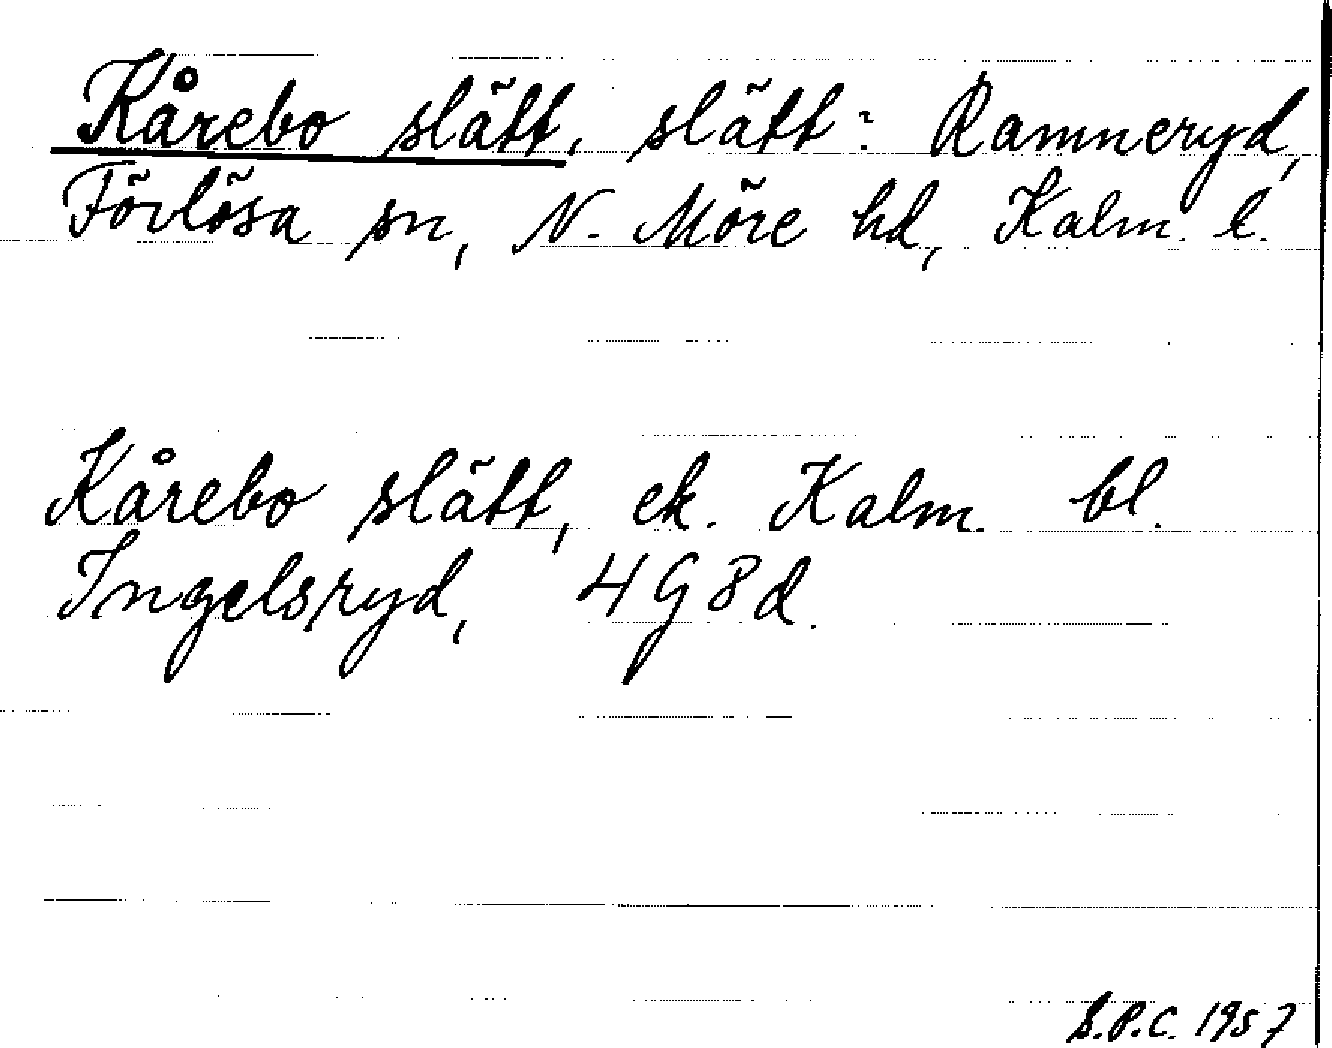 Kårebo slätt, slätt: Ramneryd,
Förlösa sn, N. Möre hd, Kalm. l.
Kårebo slätt, ek. Kalm. bl.
Ingelsryd, 4G8d.
S.P.C. 1957